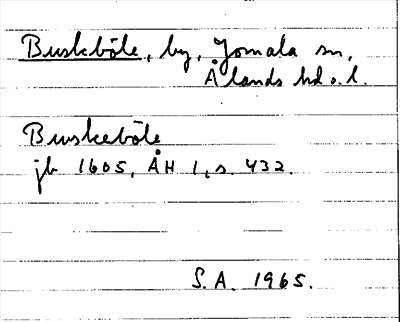 Buskböle, by, Jomala sn,
Ålands hd o. l.
Buskeböle
jb 1605, ÅH 1, s. 432.
S.A. 1965.